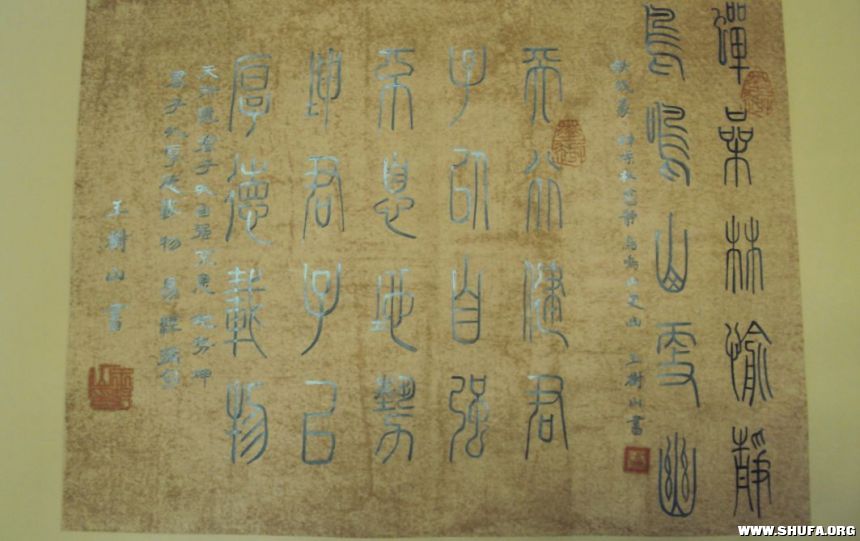 蟬噪林愉靜
鳥鳴山更幽
蟬噪林愈靜 鳥鳴山更幽 王樹山書
天行健君
子以自强
不息地勢
坤君子以
厚德載物
天行健君子以自强不息 地势坤
君子以厚德載物 易經
王樹山書
WWW.SHUFA.ORG